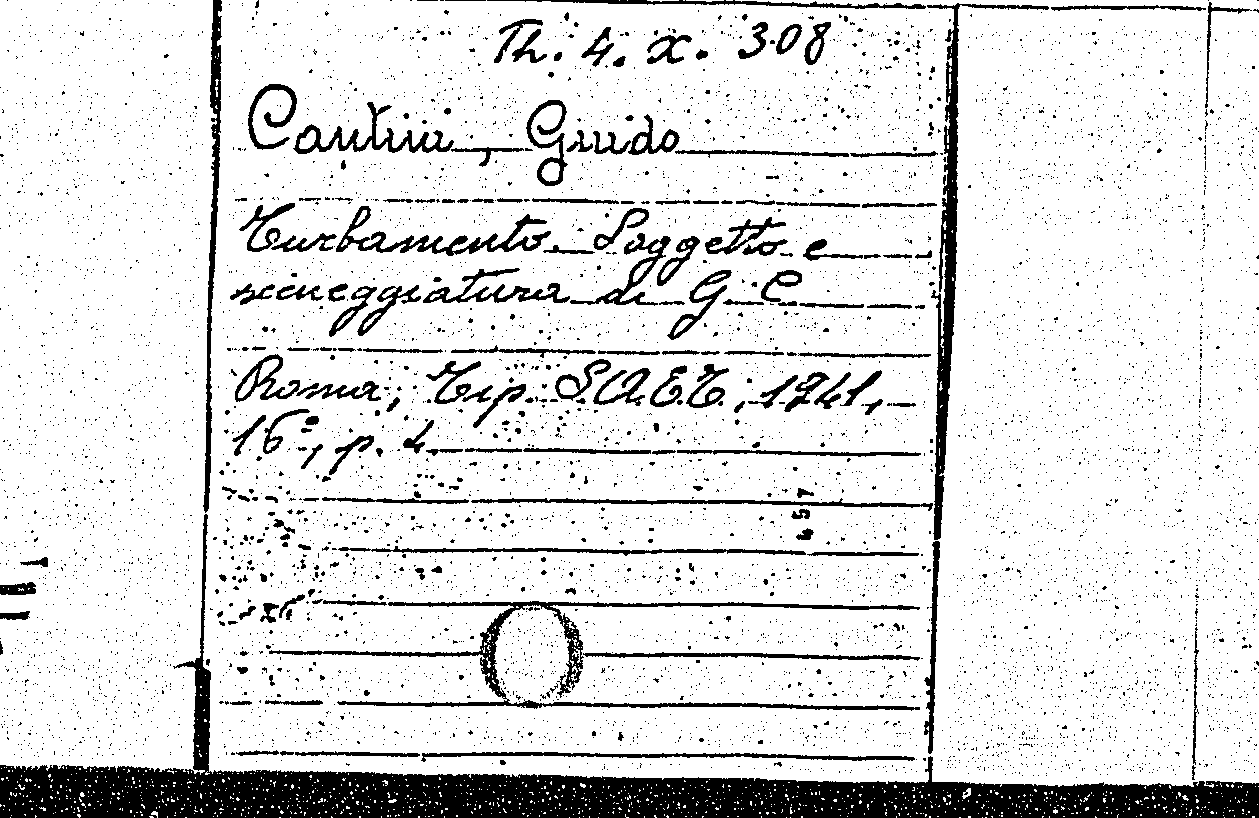 Th. 4. X. 308
Cantini, Guido
Turbamento. Soggetto e
sceneggiatura di G. C.
Roma, Tip. S.A.E.T., 1941,
16°, p. 4.
457